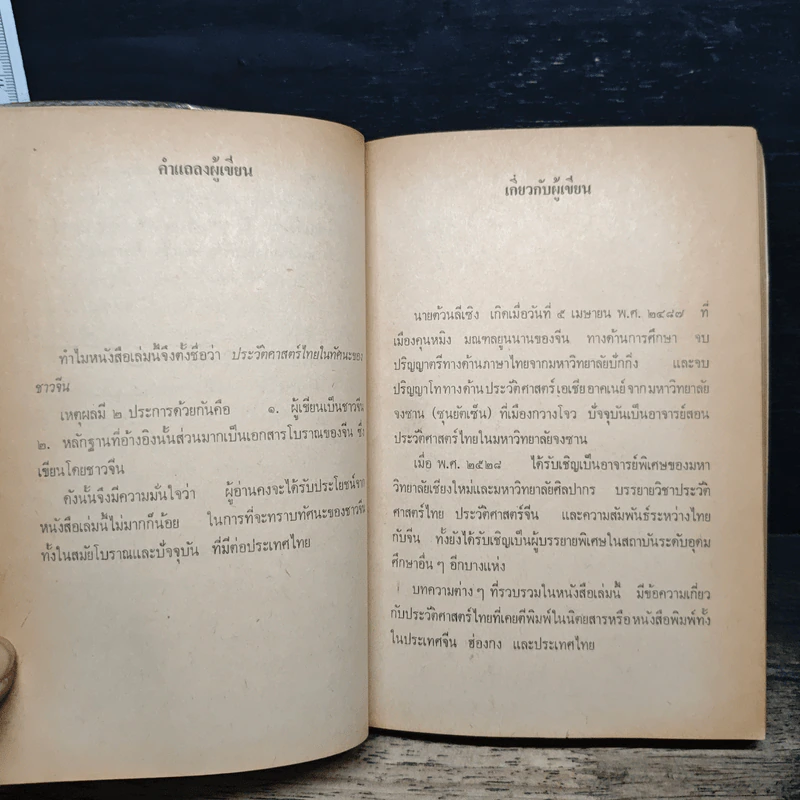 คำแถลงผู้เขียน
ทำไมหนังสือเล่มนี้จึงตั้งชื่อว่า ประวัติศาสตร์ไทยในทัศนะของ
ชาวจีน
เหตุผลมี ๒ ประการด้วยกันคือ ๑. ผู้เขียนเป็นชาวจีน
๒. หลักฐานที่อ้างอิงนั้นส่วนมากเป็นเอกสารโบราณของจีน ซึ่ง
เขียนโดยชาวจีน
ดังนั้นจึงมีความมั่นใจว่า ผู้อ่านคงจะได้รับประโยชน์จาก
หนังสือเล่มนี้ไม่มากก็น้อย ในการที่จะทราบทัศนะของชาวจีน
ทั้งในสมัยโบราณและปัจจุบัน ที่มีต่อประเทศไทย
เกี่ยวกับผู้เขียน
นายต้วนลีเซิง เกิดเมื่อวันที่ ๕ เมษายน พ.ศ. ๒๔๘๗ ที่
เมืองคุนหมิง มณฑลยูนนานของจีน ทางด้านการศึกษา จบ
ปริญญาตรีทางด้านภาษาไทยจากมหาวิทยาลัยปักกิ่ง และจบ
ปริญญาโททางด้านประวัติศาสตร์เอเชียอาคเนย์จากมหาวิทยาลัย
จงซาน (ซุนยัดเซ็น) ที่เมืองกวางโจว ปัจจุบันเป็นอาจารย์สอน
ประวัติศาสตร์ไทยในมหาวิทยาลัยจงซาน
เมื่อ พ.ศ. ๒๕๒๘ ได้รับเชิญเป็นอาจารย์พิเศษของมหา
วิทยาลัยเชียงใหม่และมหาวิทยาลัยศิลปากร บรรยายวิชาประวัติ
ศาสตร์ไทย ประวัติศาสตร์จีน และความสัมพันธ์ระหว่างไทย
กับจีน ทั้งยังได้รับเชิญเป็นผู้บรรยายพิเศษในสถาบันระดับอุดม
ศึกษาอื่น ๆ อีกบางแห่ง
บทความต่าง ๆ ที่รวบรวมในหนังสือเล่มนี้ มีข้อความเกี่ยว
กับประวัติศาสตร์ไทยที่เคยตีพิมพ์ในนิตยสารหรือหนังสือพิมพ์ทั้ง
ในประเทศจีน ฮ่องกง และประเทศไทย